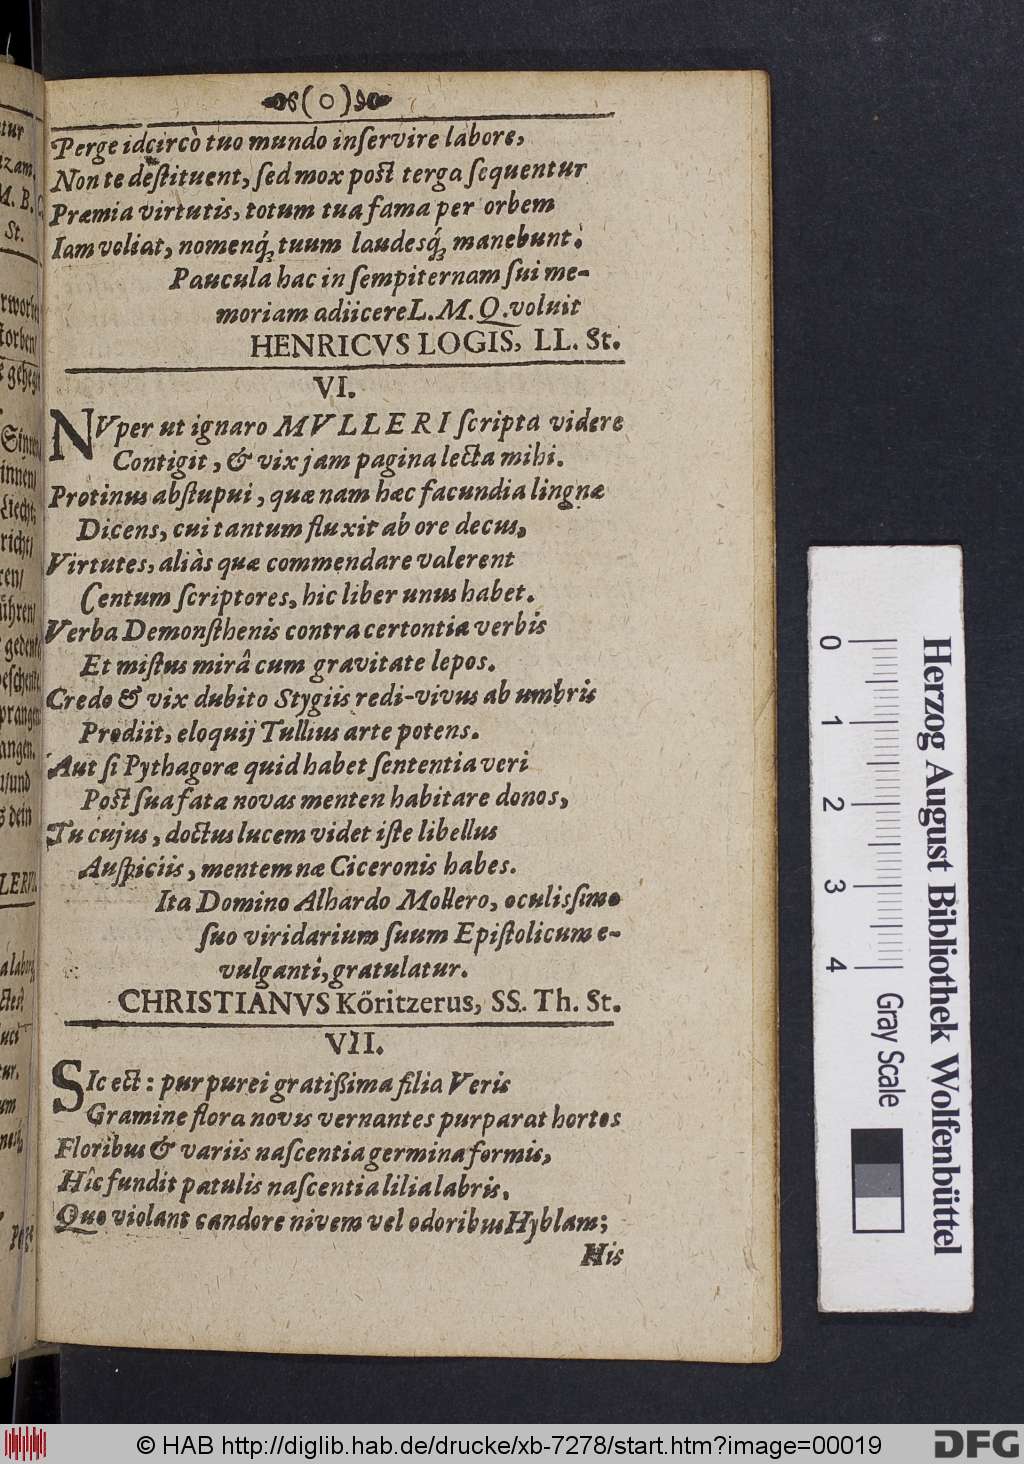 ( o )
Perge idcircò tuo mundo inſervire labore,
Non te deſtituent, ſed mox poſt terga ſequentur
Præmia virtutis, totum tua fama per orbem
Iam voliat, nomenq́; tuum laudesq́; manebunt.
Paucula hac in ſempiternam ſui me-
moriam adiicere L. M. Q. voluit
HENRICVS LOGIS, LL. St.
VI.
NVper ut ignaro MVLLERI ſcripta videre
Contigit, & vix jam pagina lecta mihi.
Protinus abſtupui, quænam hæc facundia lingnæ
Dicens, cui tantum fluxit ab ore decus,
Virtutes, aliàs quæ commendare valerent
Centum ſcriptores, hic liber unus habet.
Verba Demonſthenis contra certontia verbis
Et miſtus mirâ cum gravitate lepos.
Credo & vix dubito Stygiis redi-vivus ab umbris
Prodiit, eloquij Tullius arte potens.
Aut ſi Pythagoræ quid habet ſententia veri
Poſt ſua fata novas menten habitare donos,
Tu cujus, doctus lucem videt iſte libellus
Auſpiciis, mentem næ Ciceronis habes.
Ita Domino Alhardo Mollero, oculisſimo
ſuo viridarium ſuum Epiſtolicum e-
vulganti, gratulatur.
CHRISTIANVS Köritzerus, SS. Th. St.
VII.
SIc ect: purpurei gratißima filia Veris
Gramine flora novis vernantes purparat hortos
Floribus & variis naſcentia germina formis,
Hîc fundit patulis naſcentia lilia labris.
Quo violant candore nivem vel odoribus Hyblam;
His
tur
zam.
M. B. C.
St.
ſtorben/
richt/
ren/
ühren/
angen.
/und
s dein
ucì
tur.
um
0
1
2
3
4
Herzog August Bibliothek Wolfenbüttel
Gray Scale
© HAB http://diglib.hab.de/drucke/xb-7278/start.htm?image=00019
DFG